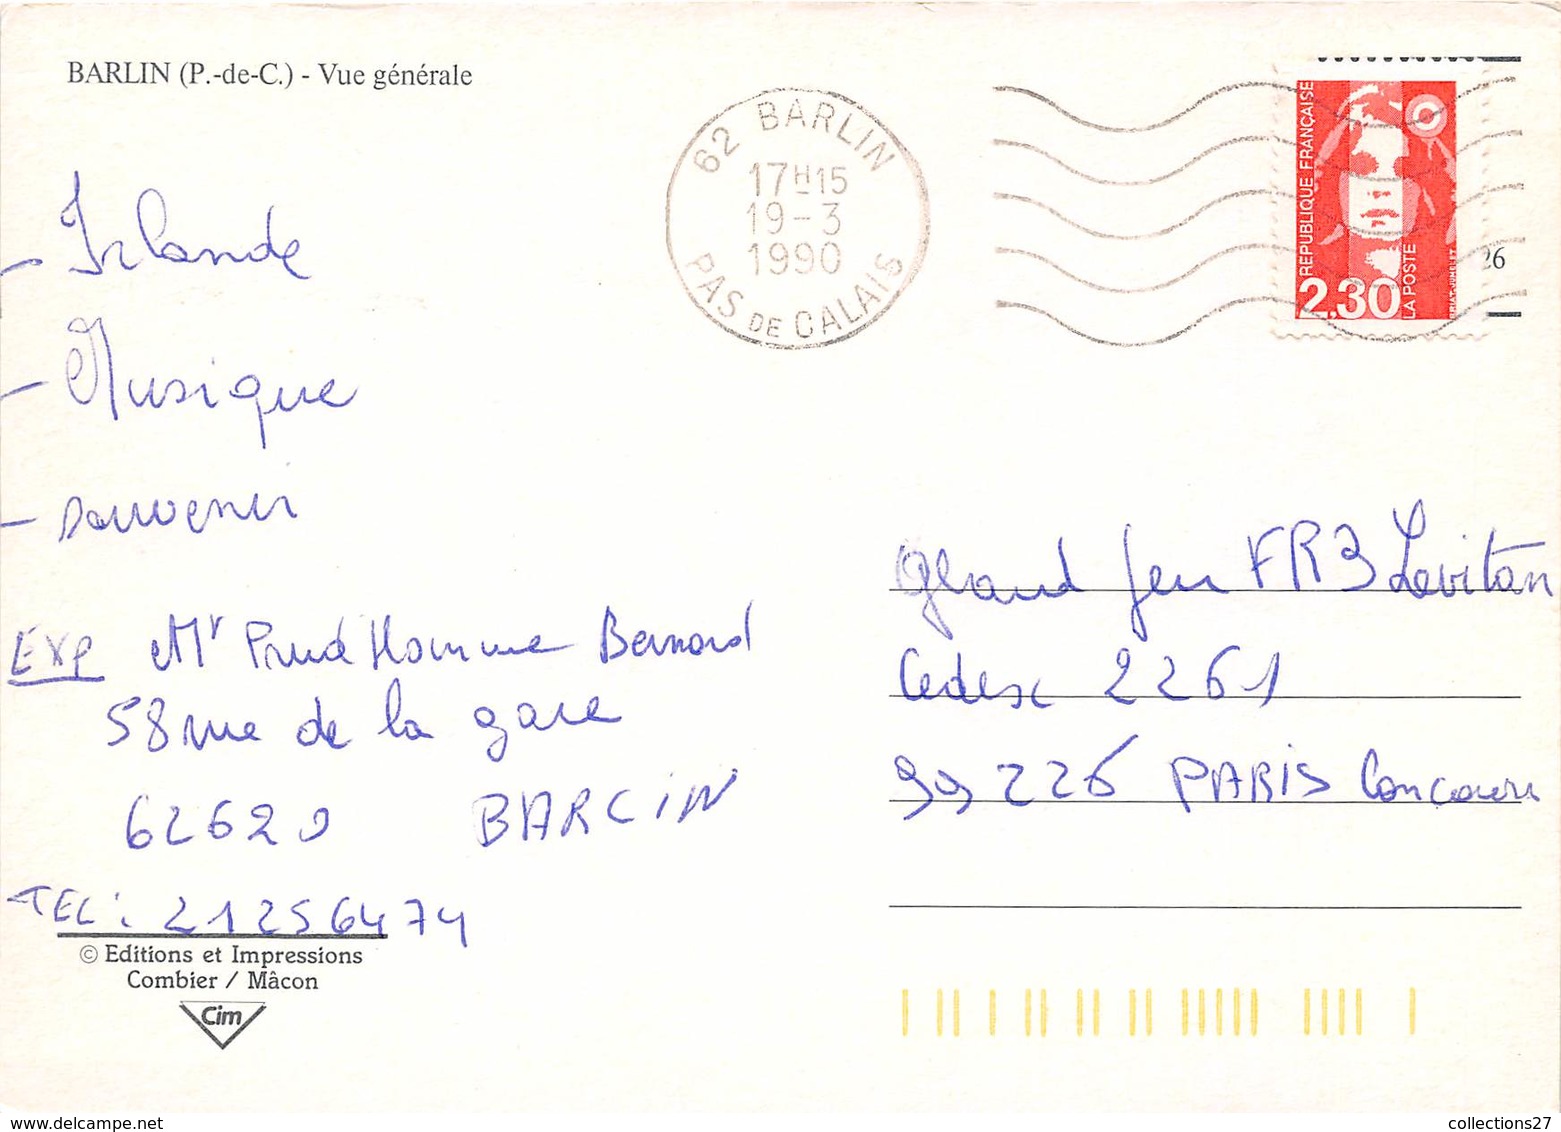 BARLIN (P.-de-C.) - Vue générale
62 BARLIN
17H15
19-3
1990
PAS DE CALAIS
REPUBLIQUE FRANÇAISE
2,30
LA POSTE
26
- Irlande
- Musique
- souvenir
Exp Mr Prud Homme Bernard
58 rue de la gare
62620 BARLIN
TEL: 21256474
© Editions et Impressions
Combier / Mâcon
Cim
Grand Jeu FR3 Levitan
Cedex 2261
99226 PARIS Concours
delcampe.net
collections27